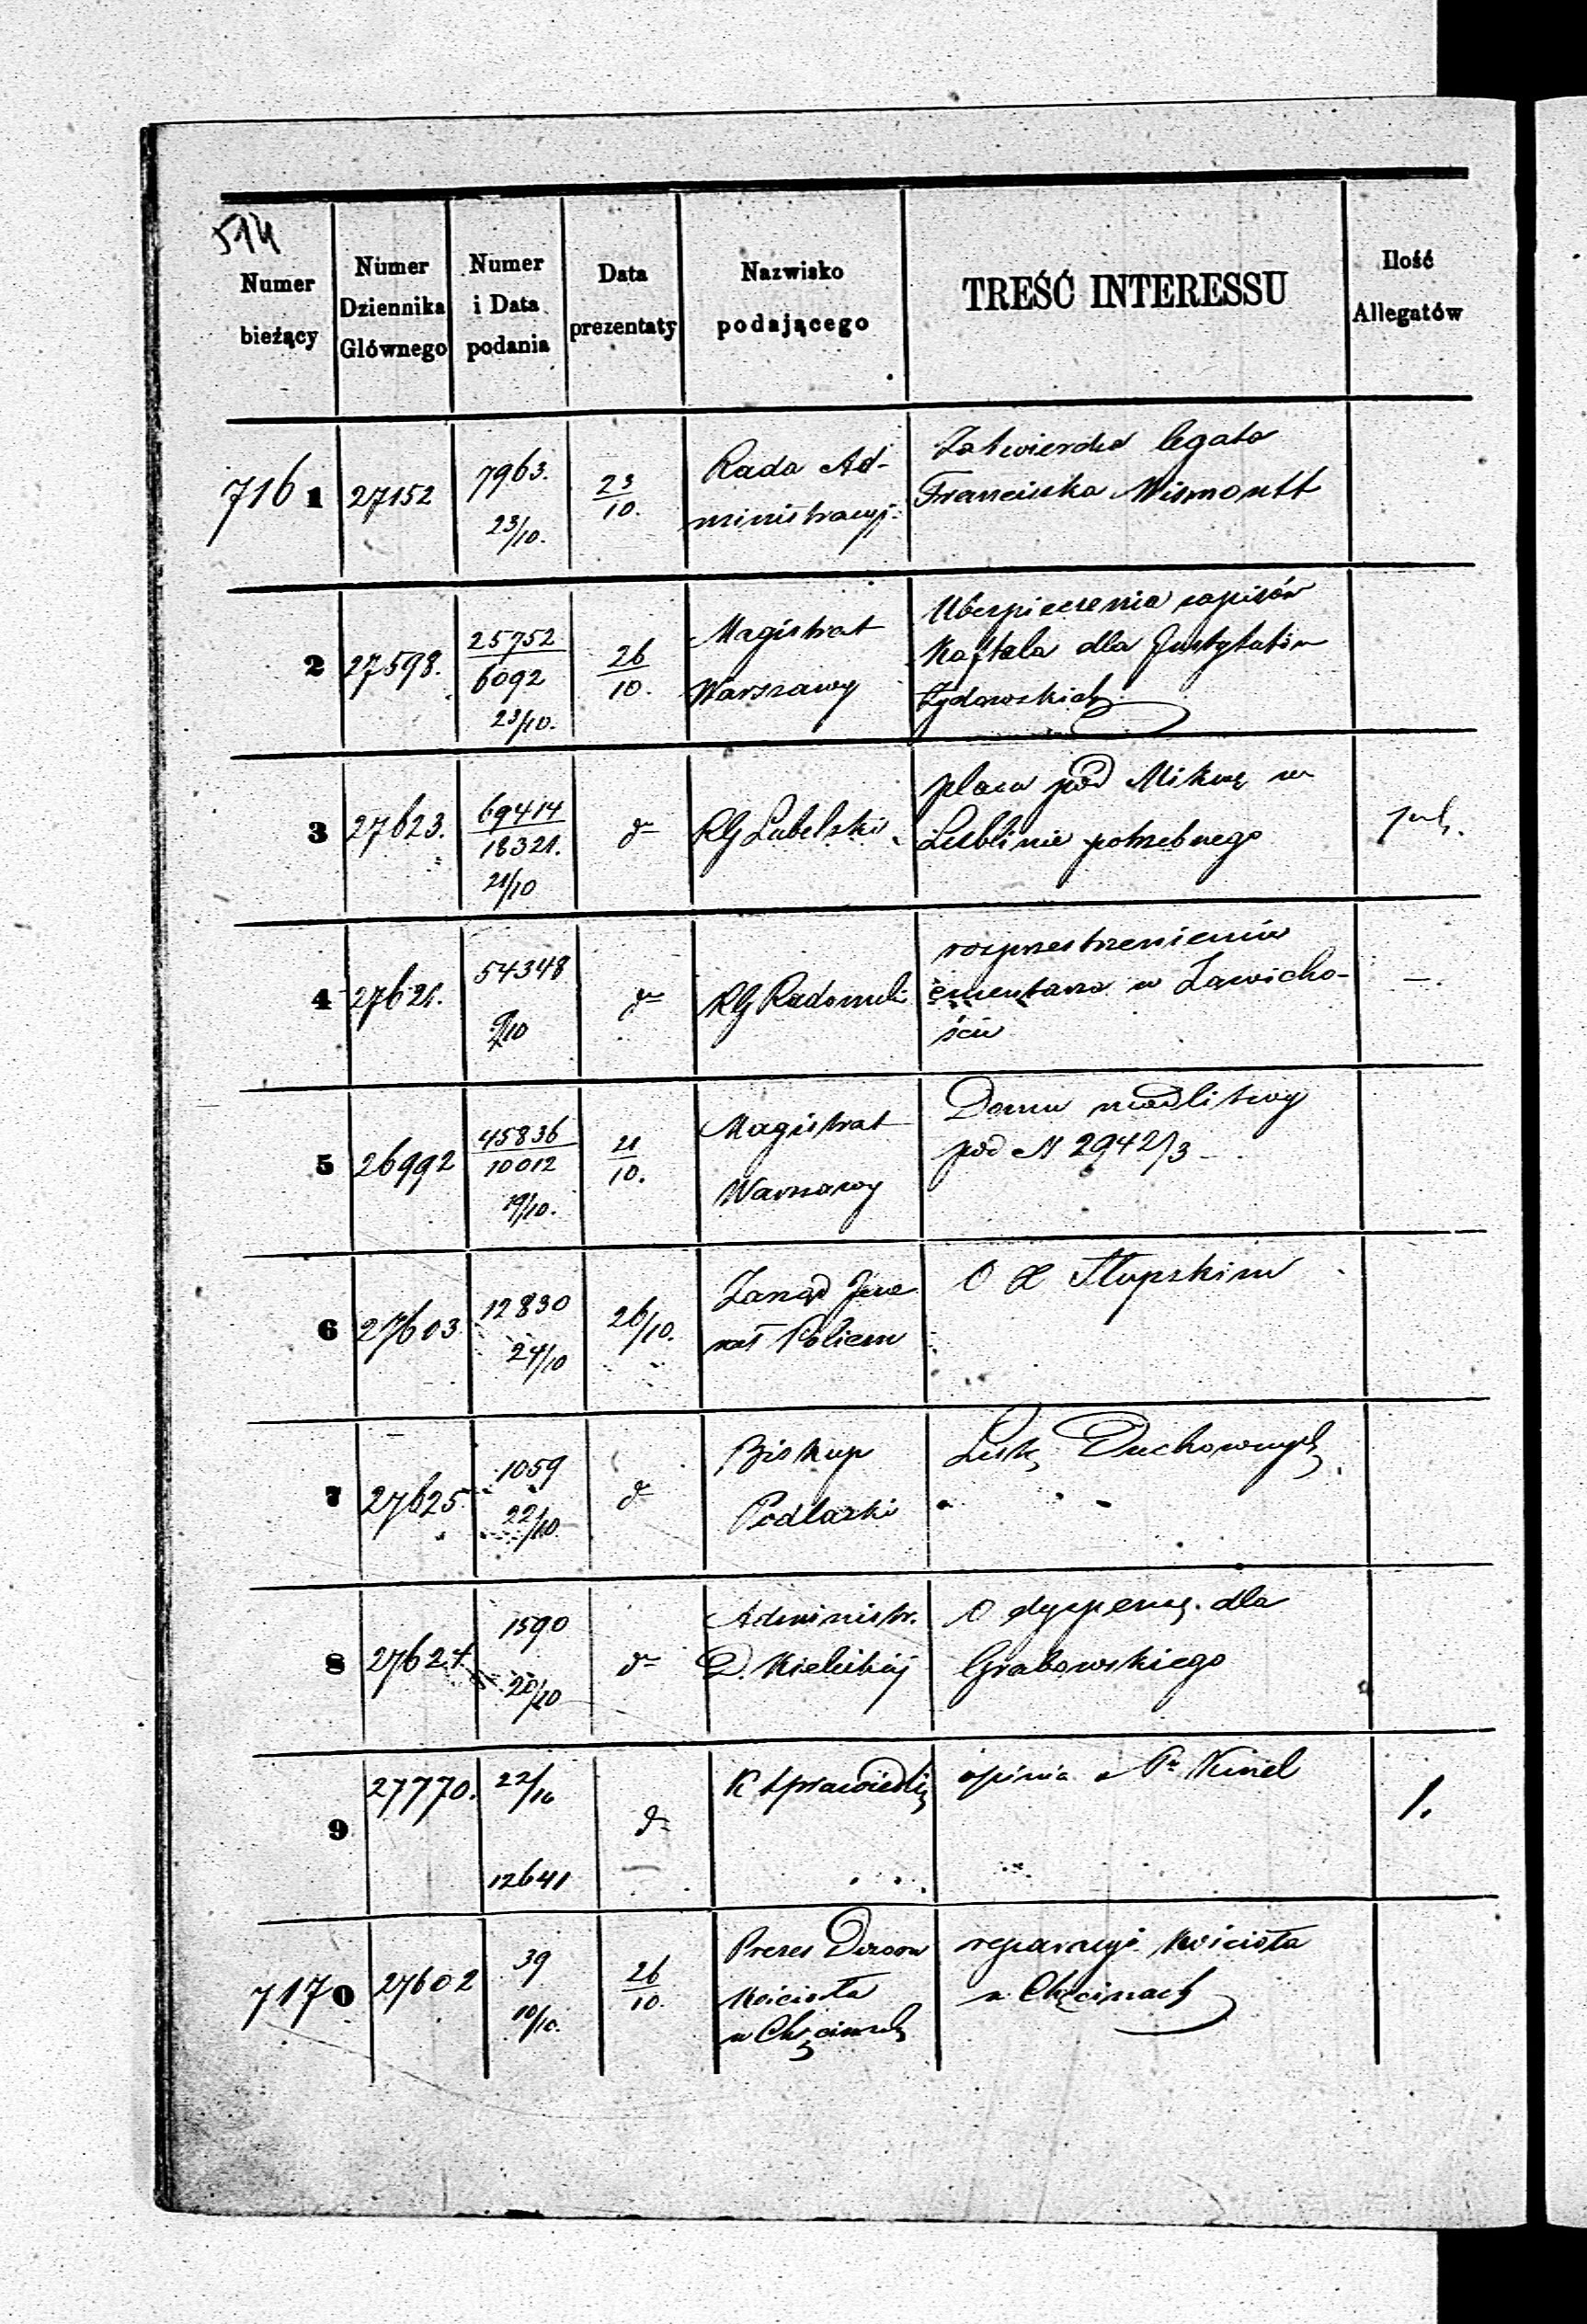 514
Numer bieżący
Numer Dziennika Głównego
Numer i Data podania
Data prezentaty
Nazwisko podającego
TREŚĆ INTERESSU
Ilość Allegatów
7161 27152 7963. 23/10. 23/10. Rada Ad-
ministracyj.
Zatwierdza legata
Franciszka Wismontt
2 27598. 25752/6092 23/10. 26/10. Magistrat
Warszawy
Ubezpieczenia zapisów
Kaftala dla Instytutów
Żydowskich
3 27623. 69414/18321. 21/10 do RG Lubelski
placu pod Mikwę w
Lublinie potrzebnego
4 27621. 54348 9/10 do RG Radomski
rozprzestrzenienia
cmentarza w Zawicho-
ściu
—.
5 26992 45836/10012 19/10. 21/10. Magistrat
Warszawy
Domu modlitwy
pod N 2942/3
6 27603 12830 24/10 26/10. Zarząd Jene
rał Policm
O X Słupskim
7 27625 1059 22/10 do Biskup
Podlaski
Duchownych
8 27624 1590 20/10 do Administr.
D. Kieleckiej
O dyspensę dla
Grabowskiego
9 27770. 22/10 12641 do K Sprawiedli
opinia
1.
7170 27602 39 10/10. 26/10. Prezes Dozoru
Kościoła
w Chęcinach
reparacyi Kościoła
w Chęcinach